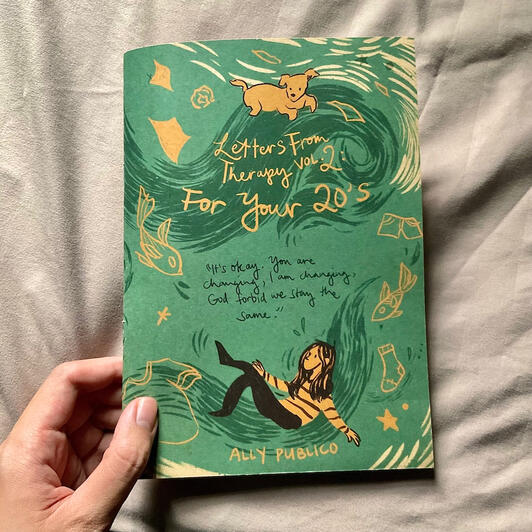 Letters From
Therapy VOL. 2:
For Your 20's
"It's okay. You are
changing, I am changing,
God forbid we stay the
same."
ALLY PUBLICO